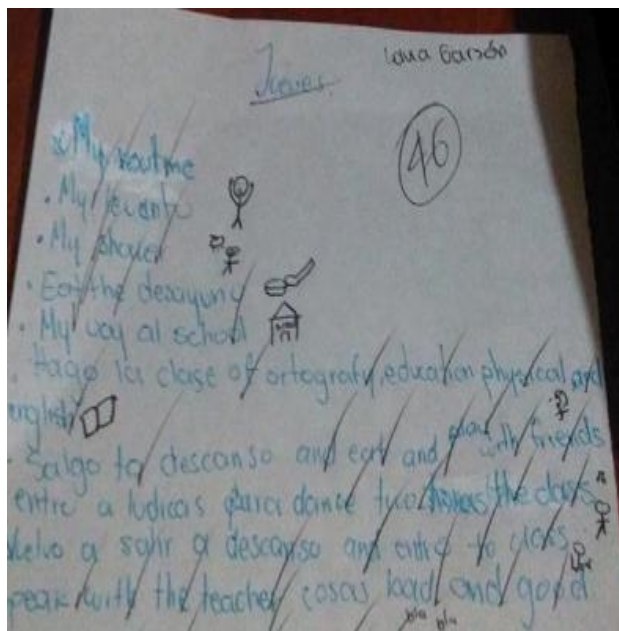 Laura Garzón
Jueves
46
My routine
· My levanto
· My shower
· Eat the desayuno
· My voy al school
· Hago la clase of ortografy, education physical and
english
· Salgo to descanso and eat and play with friends
entro a ludicas para dance two horas the class
Vuelvo a salir a descanso and entro to class
speak with the teacher cosas bad and good
bla bla